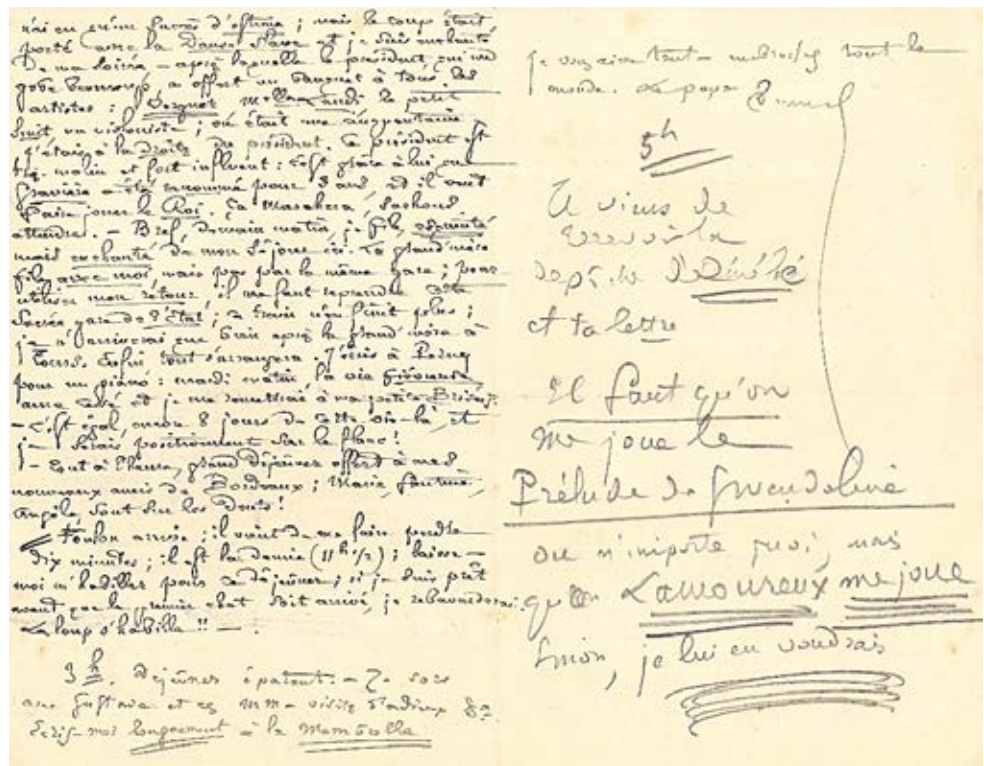 j'ai eu même succès d'estime ; mais le coup était
porté avec la Danse Slave et je suis enchanté
de ma soirée – après laquelle le président, qui me
gobe beaucoup, a offert un banquet à tous les
artistes : le petit
huit un violoniste ; on était une cinquantaine
J'étais à la droite du président. Ce président est
très malin et fort influent : c'est grâce à lui que
Gravière a été renommé pour 3 ans, et il veut
faire jouer le Roi. Ça Sachons
attendre. – Bref, demain matin, je file, esquinté
mais enchanté de mon séjour ici. Ta grand'mère
file avec moi mais pas par la même gare ; pour
utiliser mon retour, il me faut reprendre cette
sacrée gare de l'État ;
je n'arriverai que après la grand'mère à
Tours. Enfin tout s'arrangera. J'écris à
pour un piano : mardi matin, la vie
aura cessé et je me remettrai à ma petite Briséïs.
– C'est égal, encore 8 jours de cette vie-là, et
je serais positivement sur le flanc !
– Tout à l'heure, grand déjeuner offert à mes
nouveaux amis de Bordeaux ; Marie,
Angèle sont sur les dents !
Toulon arrive ; il vient de me faire perdre
dix minutes ; il est la demie (11h 1/2) ; laisse-
moi m'habiller pour ce déjeuner ; si je suis prêt
avant que le premier chat soit arrivé, je rebavarderai.
Le loup s'habille !! – .
3h. Déjeuner épatant. – Je sors
avec Gustave et visites d'adieux
Écris-moi longuement à la Membrolle
je vous aime tout – embrassez tout le
monde. Le papa
5h
Je viens de
recevoir la
dépêche de Dédé
et ta lettre
Il faut qu'on
me joue le
Prélude de Gwendoline
ou n'importe quoi, mais
que Lamoureux me joue
Sinon, je lui en voudrais